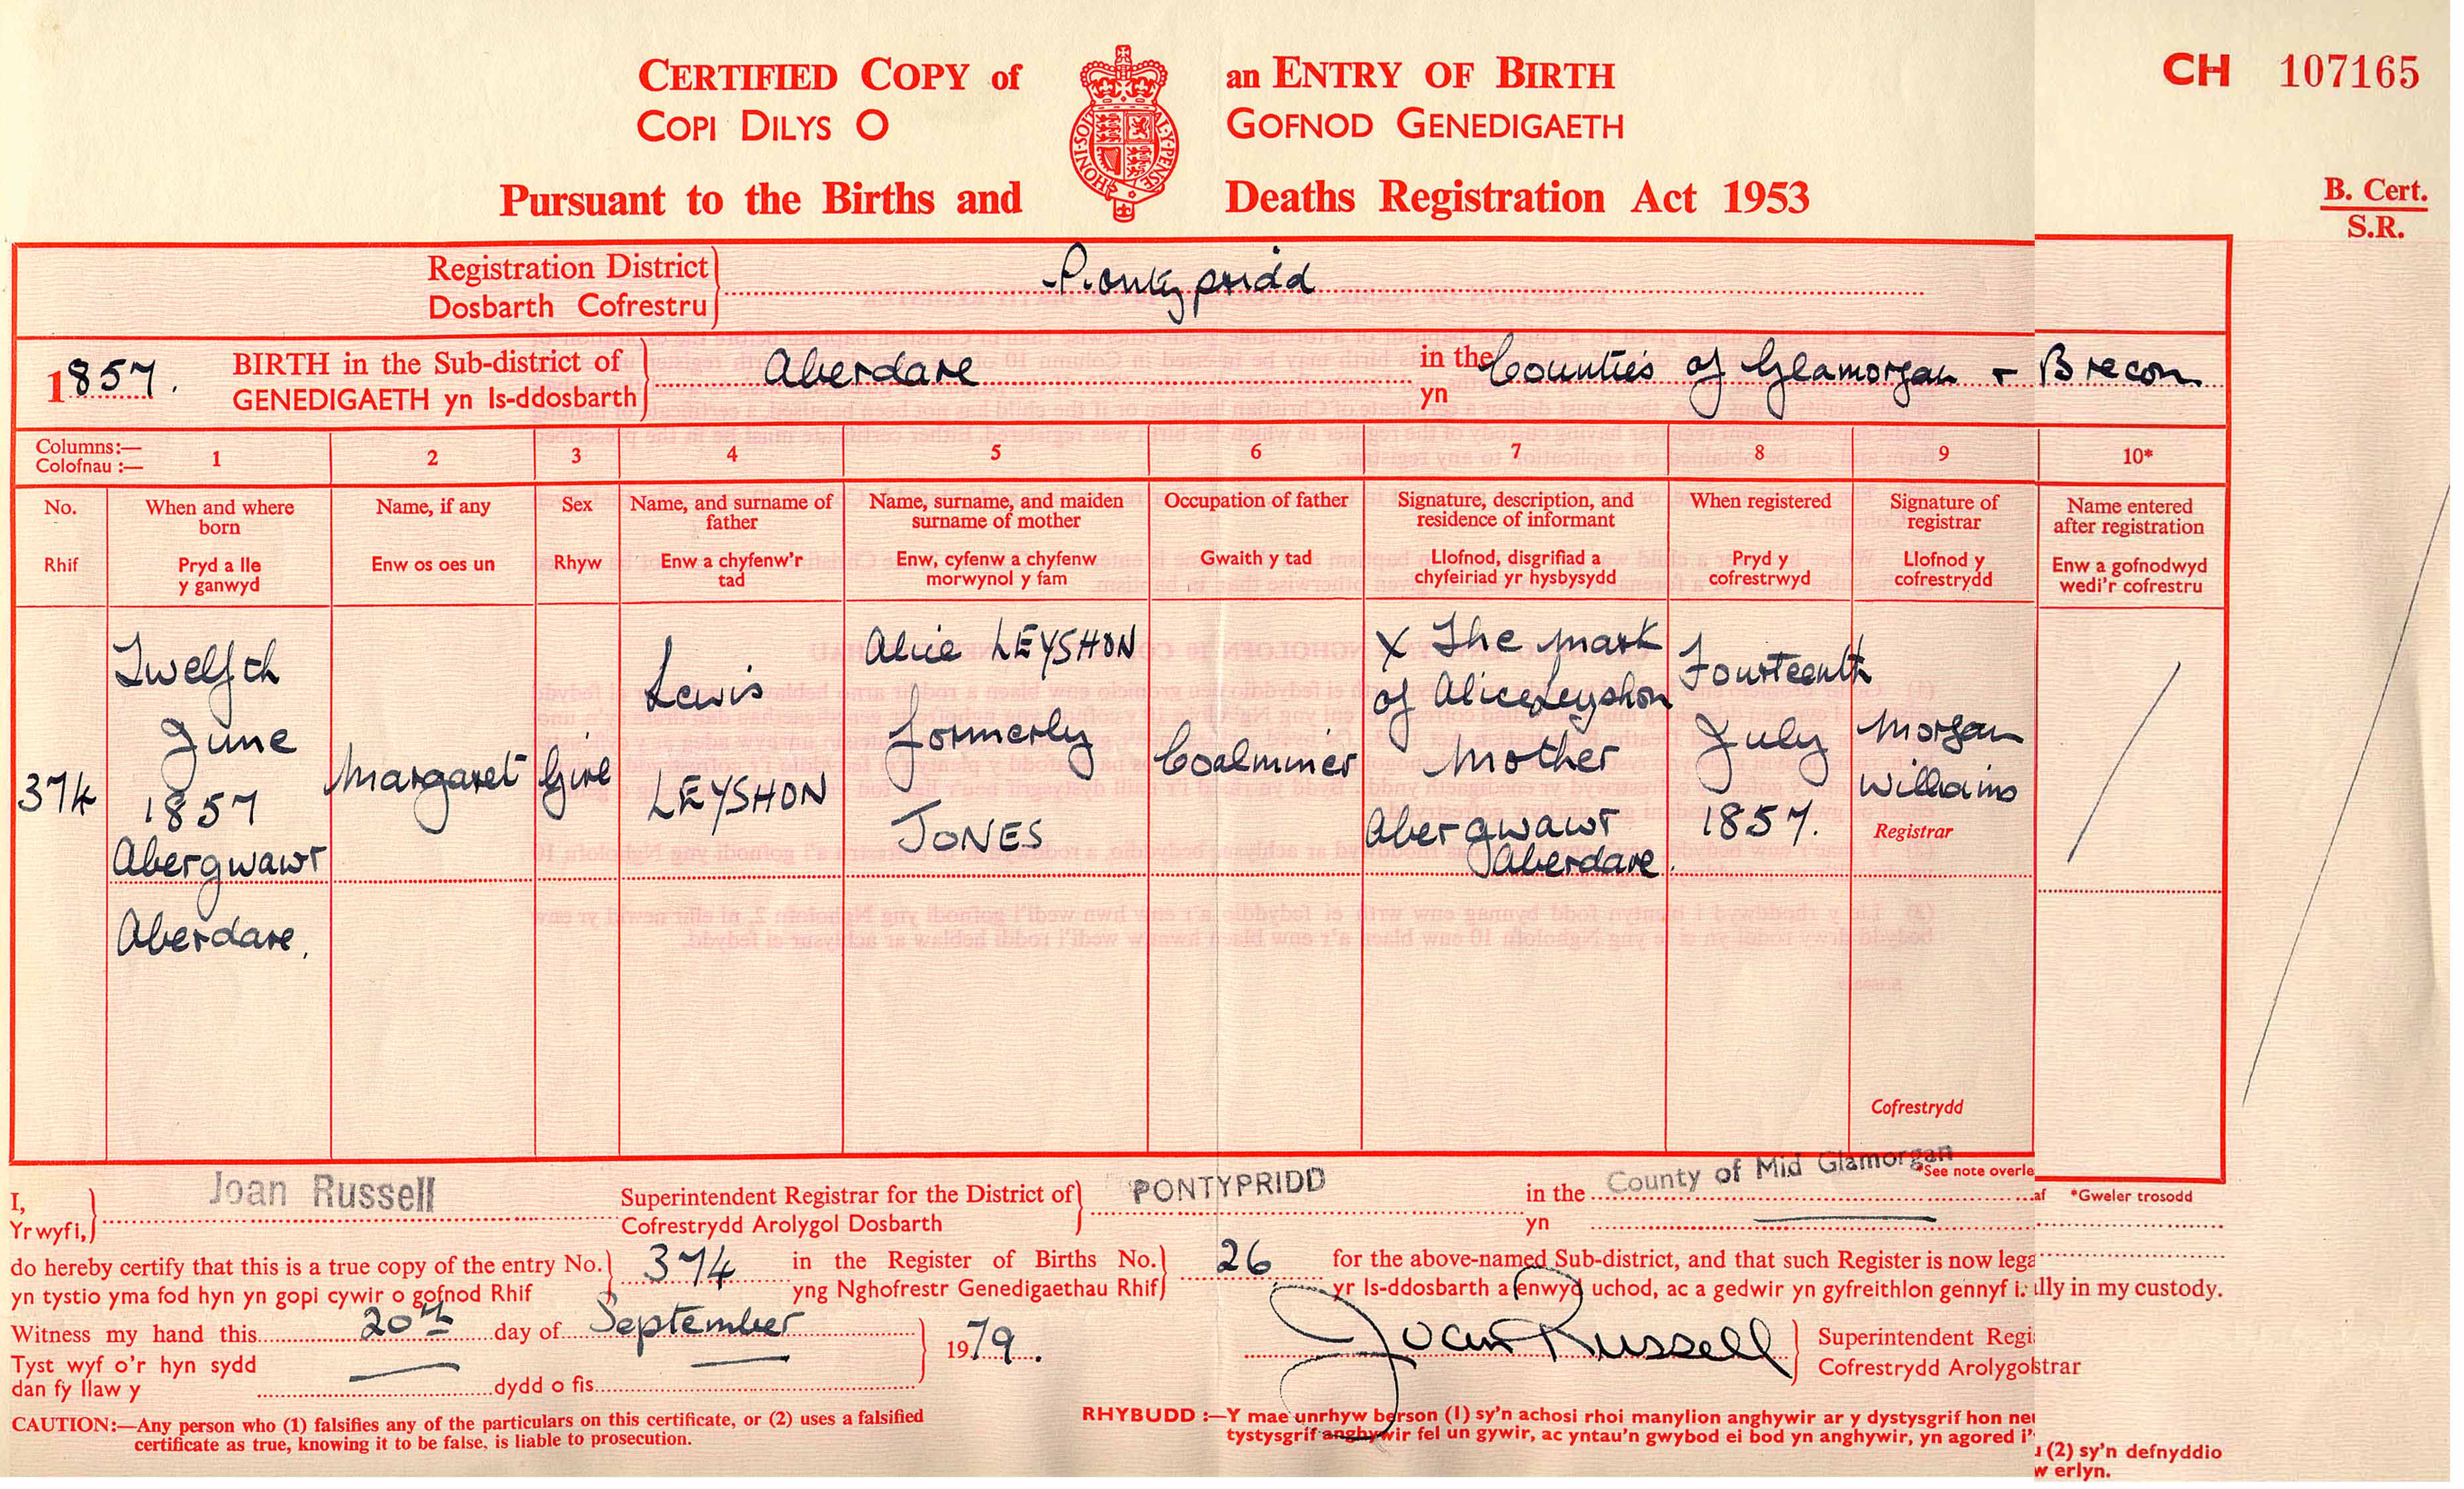 CERTIFIED COPY of an ENTRY OF BIRTH
COPI DILYS O GOFNOD GENEDIGAETH
CH 107165
HONI·SOIT AL·Y·PENSE
Pursuant to the Births and Deaths Registration Act 1953
B. Cert.
S.R.
Registration District
Dosbarth Cofrestru
Pontypridd
1857. BIRTH in the Sub-district of Aberdare in the Counties of Glamorgan + Brecon
GENEDIGAETH yn Is-ddosbarth yn
Columns:— 1 2 3 4 5 6 7 8 9 10*
Colofnau :—
No.
Rhif
When and where
born
Pryd a lle
y ganwyd
Name, if any
Enw os oes un
Sex
Rhyw
Name, and surname of
father
Enw a chyfenw'r
tad
Name, surname, and maiden
surname of mother
Enw, cyfenw a chyfenw
morwynol y fam
Occupation of father
Gwaith y tad
Signature, description, and
residence of informant
Llofnod, disgrifiad a
chyfeiriad yr hysbysydd
When registered
Pryd y
cofestrwyd
Signature of
registrar
Llofnod y
cofestrydd
Name entered
after registration
Enw a gofnodwyd
wedi'r cofestru
374
Twelfth
June
1857
Abergwawr
Aberdare.
Margaret
Girl
Lewis
LEYSHON
Alice LEYSHON
formerly
JONES
Coalminer
X The mark
of Alice Leyshon
Mother
Abergwawr
Aberdare.
Fourteenth
July
1857.
Morgan
Williams
Registrar
Cofrestrydd
*See note overle
af *Gweler trosodd
I, Joan Russell Superintendent Registrar for the District of PONTYPRIDD in the County of Mid Glamorgan
Yr wyf i, Cofrestrydd Arolygol Dosbarth yn
do hereby certify that this is a true copy of the entry No. 374 in the Register of Births No. 26 for the above-named Sub-district, and that such Register is now lega
yn tystio yma fod hyn yn gopi cywir o gofnod Rhif yng Nghofrestr Genedigaethau Rhif yr Is-ddosbarth a enwyd uchod, ac a gedwir yn gyfreithlon gennyf i.
lly in my custody.
Witness my hand this 20th day of September 1979.
Tyst wyf o'r hyn sydd
dan fy llaw y dydd o fis
Joan Russell
Superintendent Regi
Cofrestrydd Arolygol
strar
CAUTION:—Any person who (1) falsifies any of the particulars on this certificate, or (2) uses a falsified
certificate as true, knowing it to be false, is liable to prosecution.
RHYBUDD :—Y mae unrhyw berson (1) sy'n achosi rhoi manylion anghywir ar y dystysgrif hon neu
tystysgrif anghywir fel un gywir, ac yntau'n gwybod ei bod yn anghywir, yn agored i'
(2) sy'n defnyddio
w erlyn.